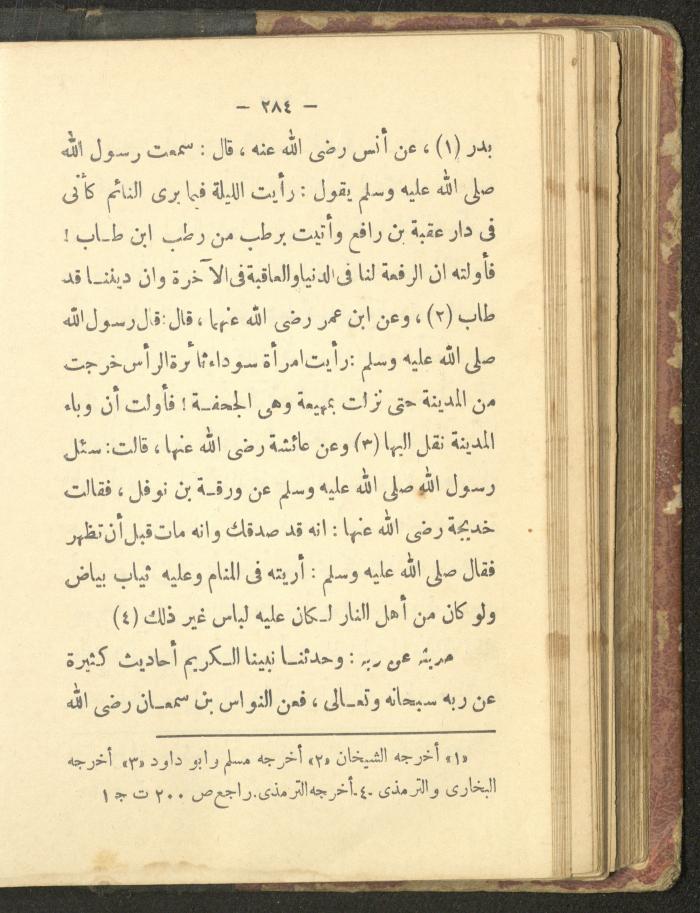 — ٢٨٤ —
بدر (١) ، عن أنس رضى الله عنه ، قال : سمعت رسول الله
صلى الله عليه وسلم يقول : رأيت الليلة فيما يرى النائم كأنى
فى دار عقبة بن رافع وأتيت برطب من رطب ابن طـاب !
فأولته ان الرفعة لنا فى الدنيا والعاقبة فى الآخرة وان ديننـا قد
طاب (٢) ، وعن ابن عمر رضى الله عنهما ، قال : قال رسول الله
صلى الله عليه وسلم : رأيت امرأة سوداء ثائرة الرأس خرجت
من المدينة حتى نزلت بمهيعة وهى الجحفـة ! فأولت أن وباء
المدينة نقل اليها (٣) وعن عائشة رضى الله عنها ، قالت : سئل
رسول الله صلى الله عليه وسلم عن ورقـة بن نوفل ، فقالت
خديجة رضى الله عنها : انه قد صدقك وانه مات قبل أن تظهر
فقال صلى الله عليه وسلم : أريته فى المنام وعليه ثياب بياض
ولو كان من أهل النار لـكان عليه لباس غير ذلك (٤)
حديثه عن ربه : وحدثنـا نبينا الـكريم أحاديث كثيرة
عن ربه سبحانه وتعـالى ، فعن النواس بن سمعـان رضى الله
«١» أخرجه الشيخان «٢» أخرجه مسلم وابو داود «٣» أخرجه
البخارى والترمذى ـ٤ـ أخرجه الترمذى . راجع ص ٢٠٠ ت ج ١